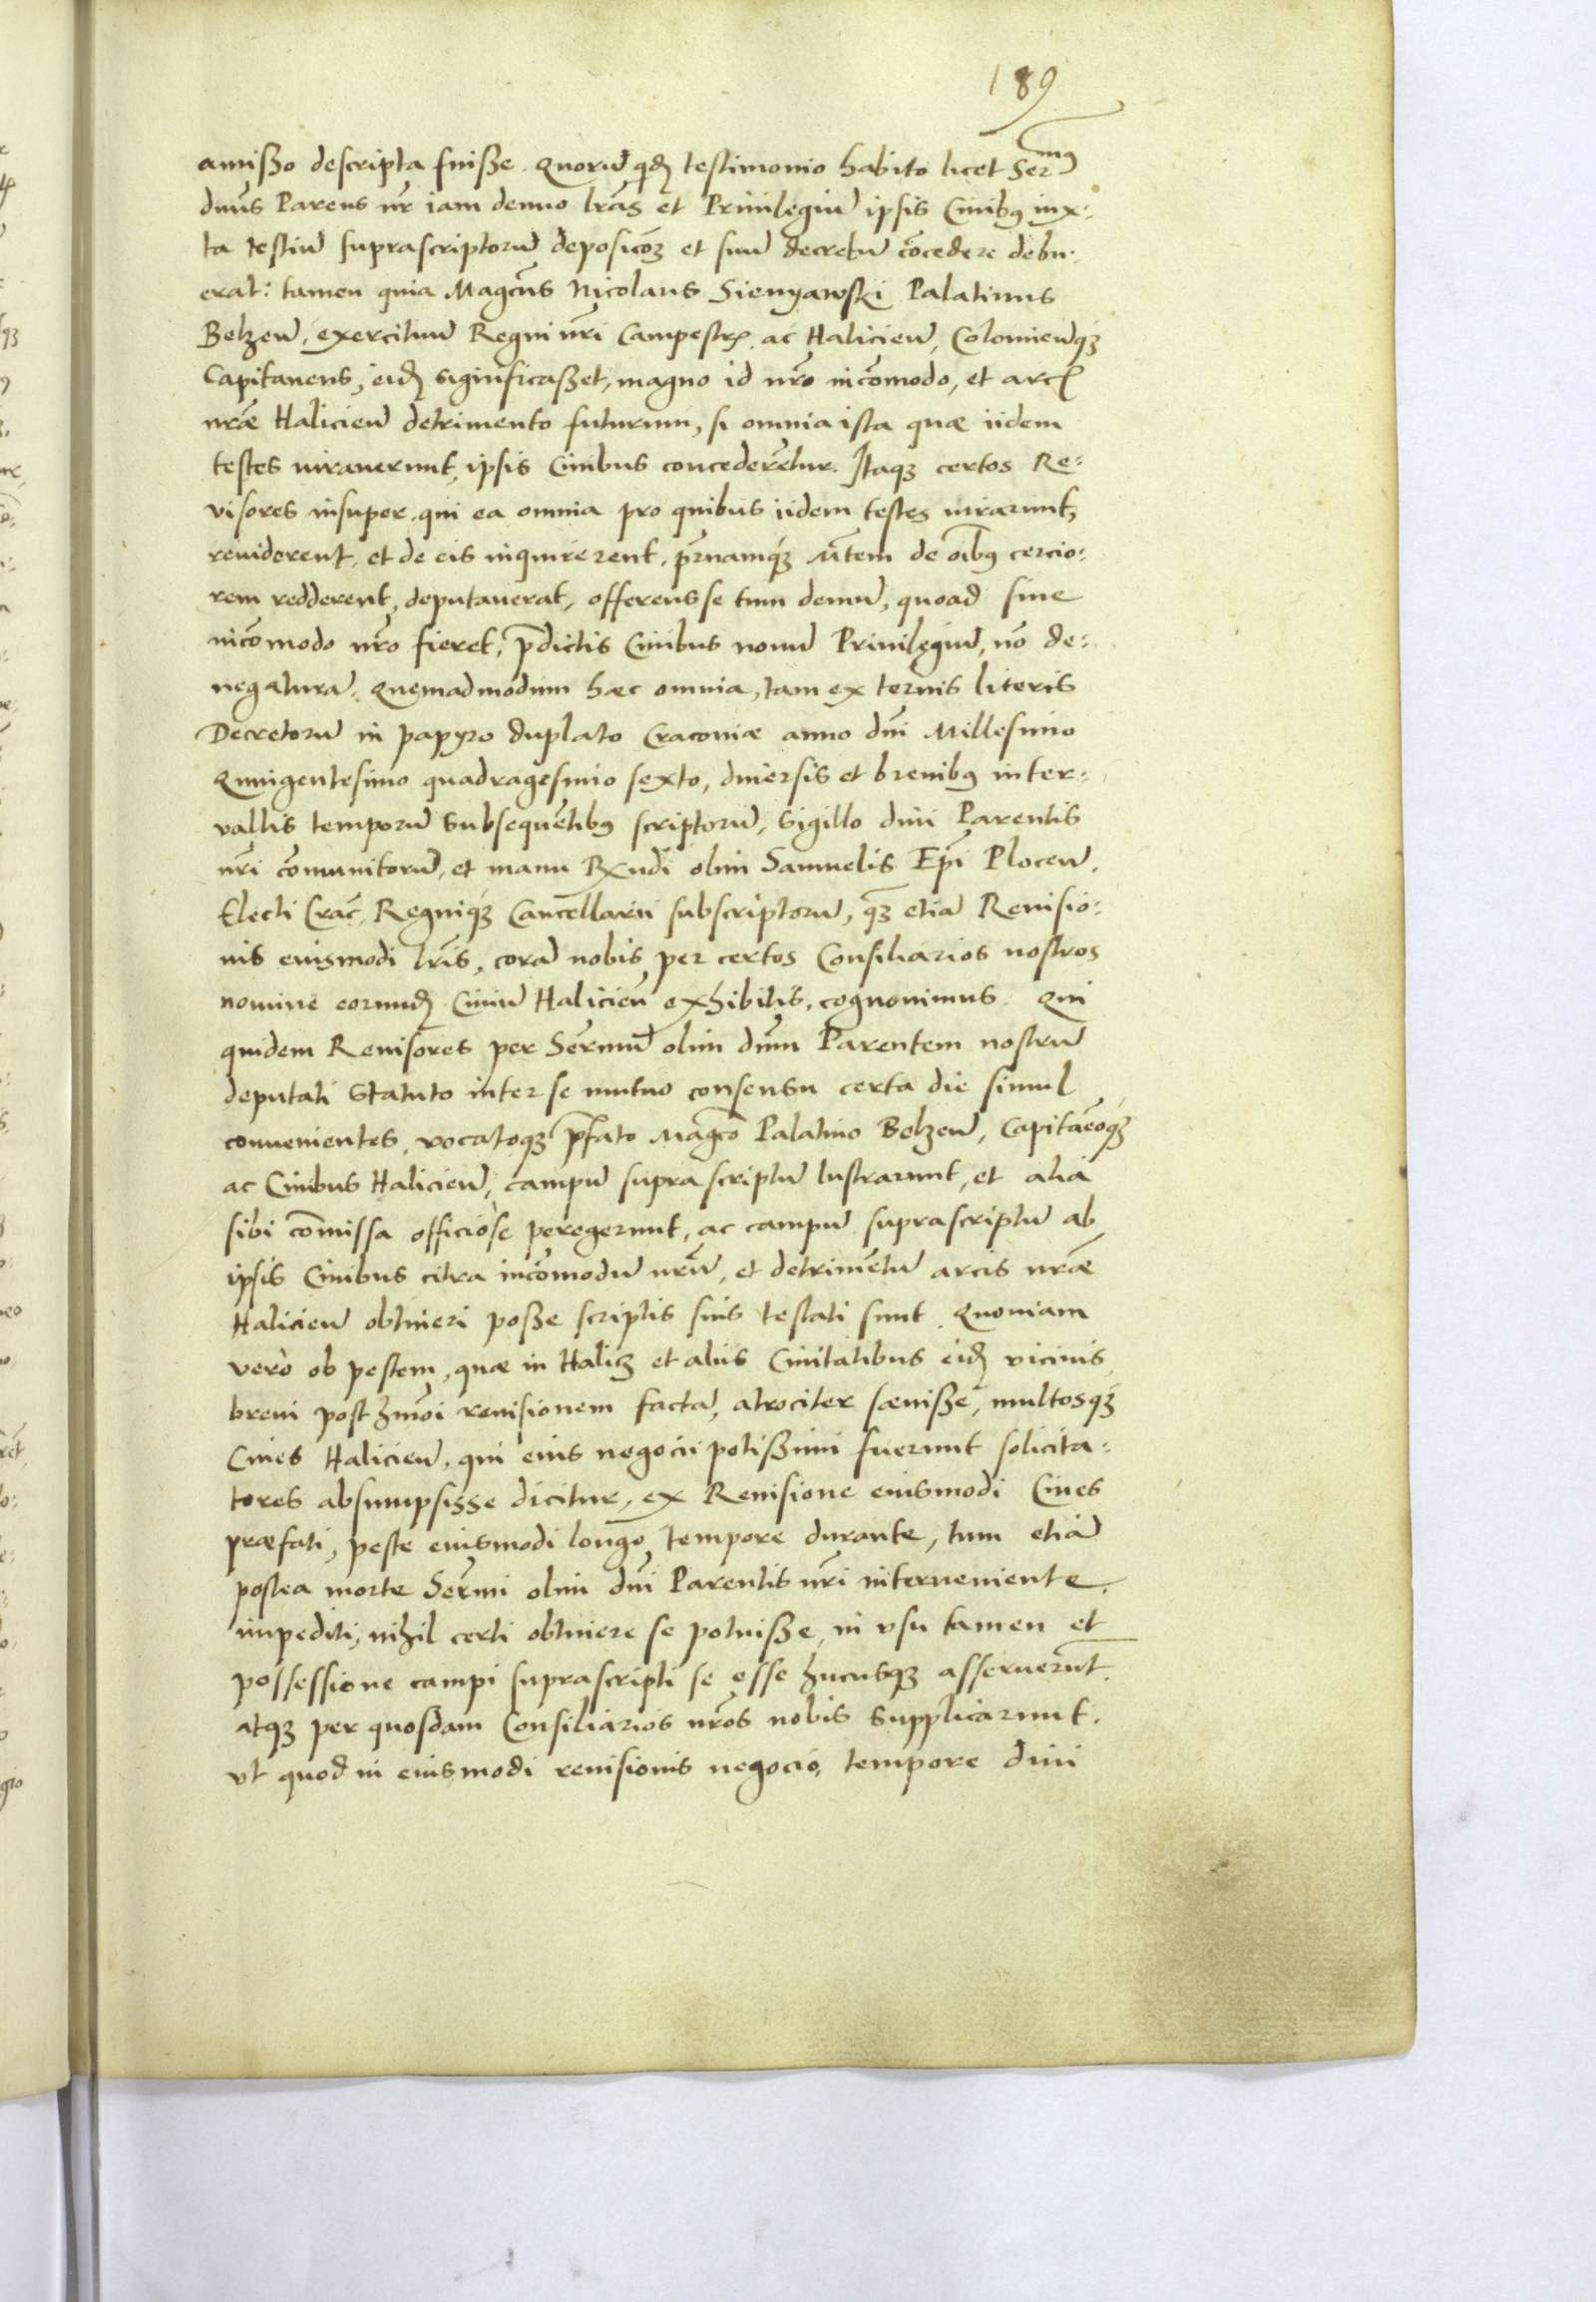 189
amißo descripta fuiße. Quorũ qđ testimonio habito licet Serᵐᵘˢ
dnũs Parens nr̃ iam denuo lrãs et Priuilegiũ ipsis Ciuibꝰ iux:
ta testiũ suprascriptorũ deposicõꝫ et suũ decretũ cõcedere debu:
erat: tamen quia Magcũs Nicolaus Sienyawski Palatinus
Belzeñ, exercituũ Regni nr̃i Campestrꝭ, ac Halicieñ, Colomieñqꝫ
Capitaneus, eiđ significaßet, magno id nr̃o incõmodo, et arcꝭ
nr̃æ Halicieñ detrimento futurum, si omnia ista quæ iidem
testes iurauerunt, ipsis Ciuibus concederẽtur. Itaqꝫ certos Re:
visores insuper, qui ea omnia pro quibus iidem testes iurarunt,
reuiderent, et de eis inquirerent, pr̃namqꝫ M̃tem de oĩbꝰ cercio:
rem redderent, deputauerat, offerens se tum demũ, quoad sine
incõmodo nr̃o fieret, p̃dictis Ciuibus nouũ Priuilegiũ, nõ de:
negaturã. Quemadmodum hæc omnia, tam ex ternis literis
Decretorũ in papyro duplato Cracoviæ anno dnĩ Millesimo
Quingentesimo quadragesimo sexto, diuersis et breuibꝰ inter:
vallis temporũ subsequẽtibꝰ scriptorũ, sigillo diui Parentis
nr̃i cõmunitorũ, et manu Rxndĩ olim Samuelis Ep̃i Ploceñ,
Electi Crac̃, Regniqꝫ Cancellarii subscriptorũ, qꝫ etiã Reuisio:
nis eiusmodi lr̃is, corã nobis per certos Consiliarios nostros
nomine eorunđ Ciuiũ Halicieñ exhibitis, cognouimus. Qui
quidem Reuisores per Ser̃mũ olim dnũm Parentem nostrũ
deputati statuto inter se mutuo consensu certa die simul
conuenientes, vocatoqꝫ p̃fato Magcõ Palatino Belzeñ, Capitãeoqꝫ
ac Ciuibus Halicieñ, campũ supra scriptũ lustrarunt, et alia
sibi cõmissa officiòse peregerunt, ac campũ suprascriptũ ab
ipsis Ciuibus citra incõmodũ nr̃ũ, et detrimẽtũ arcis nr̃æ
Halicieñ obtineri poße scriptis suis testati sunt. Quoniam
verò ob pestem, quæ in Halicz et aliis Ciuitatibus eiđ vicinis
breui post hmõi reuisionem factã, atrociter sæuiße, multosqꝫ
Ciues Halicieñ, qui eius negocii potißimi fuerunt solicita:
tores absumpsisse dicitur, ex Reuisione eiusmodi Ciues
præfati, peste eiusmodi longo tempore durante, tum etiã
postea morte Ser̃mi olim dnĩ Parentis nr̃i interueniente,
impediti, nihil certi obtinere se potuiße, in vsu tamen et
possessione campi suprascripti se esse hucusqꝫ asseruerũt,
atqꝫ per quosdam Consiliarios nr̃os nobis supplicarunt,
vt quod in eiusmodi reuisionis negocio, tempore diui